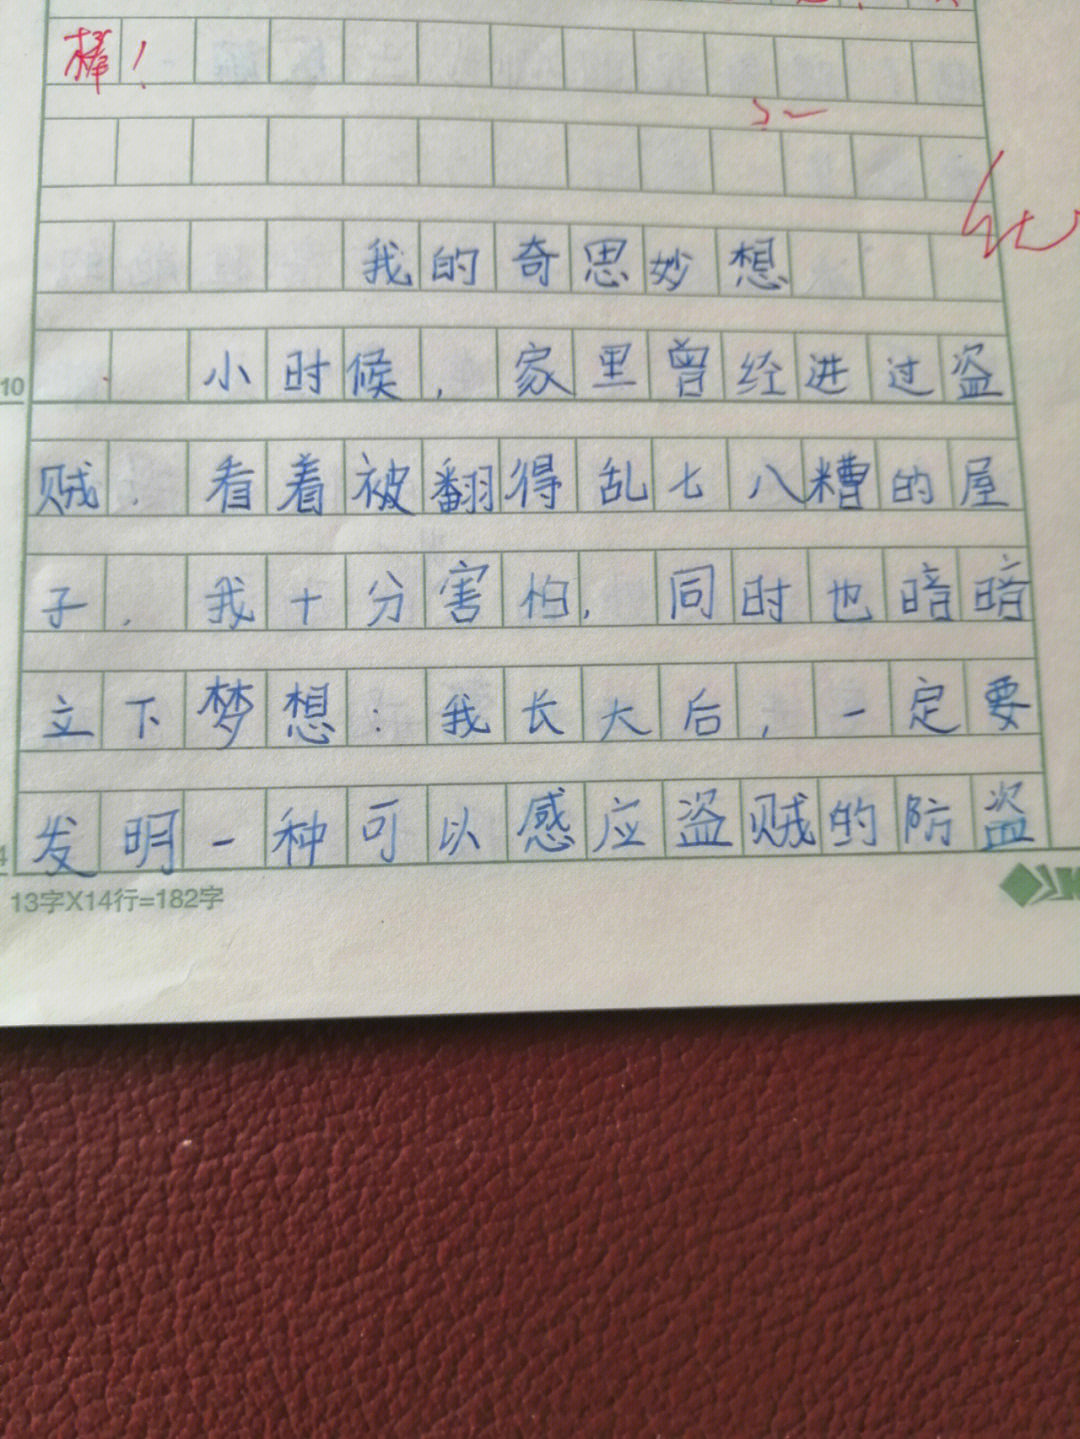 棒！
我的奇思妙想
小时候，家里曾经进过盗
10
贼，看着被翻得乱七八糟的屋
子，我十分害怕，同时也暗暗
立下梦想：我长大后，一定要
发明一种可以感应盗贼的防盗
13字X14行=182字